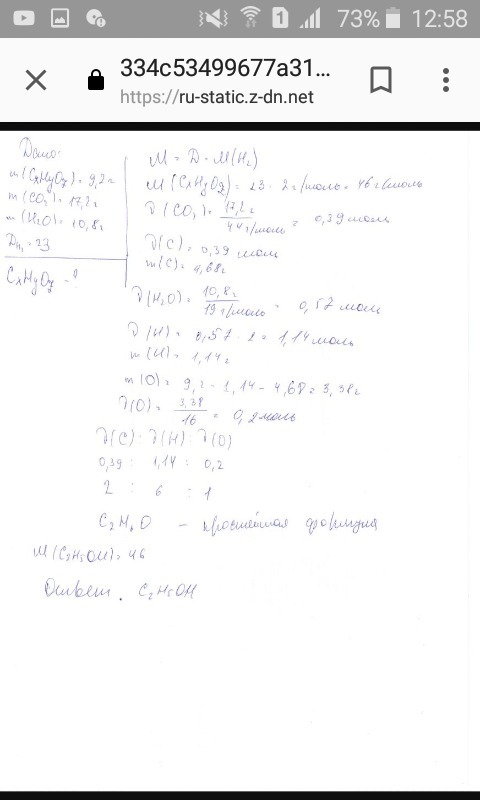 73% 12:58
334c53499677a31...
https://ru-static.z-dn.net
Дано:
m(CxHyOz) = 9,2г
m(CO2) = 17,2г
m(H2O) = 10,8г
DH2 = 23
CxHyOz - ?
M = D · M(H2)
M(CxHyOz) = 23 · 2 г/моль = 46 г/моль
ν(CO2) = 17,2г / 44г/моль = 0,39 моль
ν(C) = 0,39 моль
m(C) = 4,68г
ν(H2O) = 10,8г / 19г/моль = 0,57 моль
ν(H) = 0,57 · 2 = 1,14 моль
m(H) = 1,14г
m(O) = 9,2 - 1,14 - 4,68 = 3,38г
ν(O) = 3,38 / 16 = 0,2 моль
ν(C) : ν(H) : ν(O)
0,39 : 1,14 : 0,2
2 : 6 : 1
C2H6O - простейшая формула
M(C2H5OH) = 46
Ответ. C2H5OH